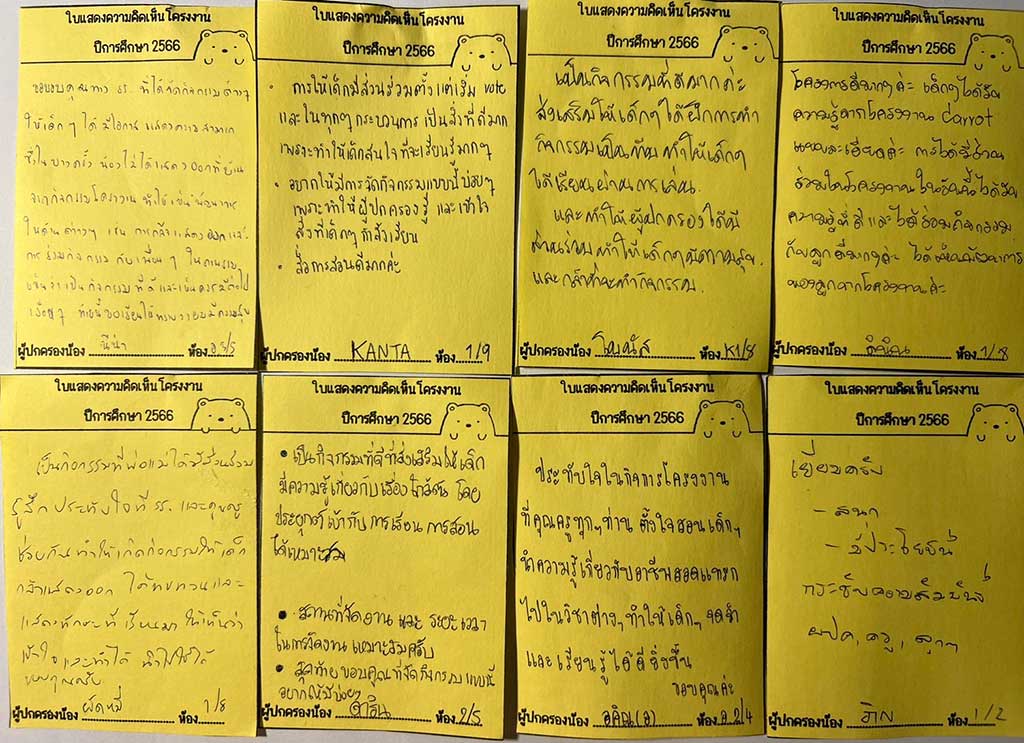 ใบแสดงความคิดเห็นโครงงาน
ปีการศึกษา 2566
ขอขอบคุณทาง รร. ที่ได้จัดกิจกรรมต่างๆ
ให้เด็กๆ ได้ มีโอกาส แสดงความสามารถ
ซึ่งในบางครั้ง น้องไม่ได้แสดงออกที่บ้าน
จากกิจกรรมโครงงาน ทำให้
ในด้านต่างๆ เช่น การกล้าแสดงออก และ
การร่วมกิจกรรม กับเพื่อนๆ
เห็นว่าเป็นกิจกรรม ที่ดี และเห็นควรมีต่อไป
เรื่อยๆ
ผู้ปกครองน้อง นีน่า ห้อง
ใบแสดงความคิดเห็นโครงงาน
ปีการศึกษา 2566
• การให้เด็กมีส่วนร่วมตั้งแต่เริ่ม vote
และในทุกๆกระบวนการ เป็นสิ่งที่ดีมาก
เพราะทำให้เด็กสนใจที่จะเรียนรู้มากๆ
• อยากให้มีการจัดกิจกรรมแบบนี้บ่อยๆ
เพราะทำให้ผู้ปกครองรู้ และเข้าใจ
สิ่งที่เด็กๆ กำลังเรียน
• สื่อการสอนดีมากค่ะ
ผู้ปกครองน้อง KANTA ห้อง 1/9
ใบแสดงความคิดเห็นโครงงาน
ปีการศึกษา 2566
เป็นกิจกรรมที่ดีมากค่ะ
ส่งเสริมให้เด็กๆ ได้ฝึกการทำ
กิจกรรมเป็นทีม ทำให้เด็กๆ
ได้เรียนผ่านการเล่น.
และทำให้ผู้ปกครองได้มี
ส่วนร่วม ทำให้เด็กๆมีความสุข.
และกล้าที่จะทำกิจกรรม.
ผู้ปกครองน้อง ห้อง K1/8
ใบแสดงความคิดเห็นโครงงาน
ปีการศึกษา 2566
โครงการดีมากๆค่ะ เด็กๆได้รับ
ความรู้จากโครงงาน carrot
แบบละเอียดค่ะ การได้มีส่วน
ร่วมในโครงงานในวันนี้ได้รับ
ความรู้ที่ดี และได้ร่วมกิจกรรม
กับลูกดีมากๆค่ะ ได้เห็นพัฒนาการ
ของลูกจากโครงงานค่ะ
ผู้ปกครองน้อง ห้อง 1/8
ใบแสดงความคิดเห็นโครงงาน
ปีการศึกษา 2566
เป็นกิจกรรมที่พ่อแม่ได้มีส่วนร่วม
รู้สึก ประทับใจที่ รร. และคุณครู
ช่วยกัน ทำให้เกิดกิจกรรมให้เด็ก
กล้าแสดงออก ได้ทบทวนและ
แสดงทักษะที่ เรียนมา ให้เห็นว่า
เข้าใจ และทำได้ นำไปใช้ได้
ขอบคุณครับ
ผู้ปกครองน้อง ผัดหมี่ ห้อง 1/8
ใบแสดงความคิดเห็นโครงงาน
ปีการศึกษา 2566
• เป็นกิจกรรมที่ดี ที่ส่งเสริมให้เด็ก
มีความรู้เกี่ยวกับเรื่องใกล้ตัว โดย
ประยุกต์เข้ากับ การเรียน การสอน
ได้เหมาะสม
• สถานที่จัดงาน และ ระยะเวลา
ในการจัดงาน เหมาะสมครับ
• สุดท้าย ขอบคุณที่จัดกิจกรรม แบบนี้
อยากให้มีบ่อยๆ
ผู้ปกครองน้อง ห้อง 2/5
ใบแสดงความคิดเห็นโครงงาน
ปีการศึกษา 2566
ประทับใจในกิจการโครงงาน
ที่คุณครูทุกๆท่าน ตั้งใจสอนเด็กๆ
นำความรู้เกี่ยวกับอาชีพสอดแทรก
ไปในวิชาต่างๆ ทำให้เด็กๆ จดจำ
และ เรียนรู้ ได้ดียิ่งขึ้น
ขอบคุณค่ะ
ผู้ปกครองน้อง อคิณ(อ) ห้อง อ 2/4
ใบแสดงความคิดเห็นโครงงาน
ปีการศึกษา 2566
เยี่ยมครับ
- สนุก
- มีประโยชน์
กระชับความสัมพันธ์
ผปค, ครู, ลูกๆ
ผู้ปกครองน้อง ห้อง 1/2